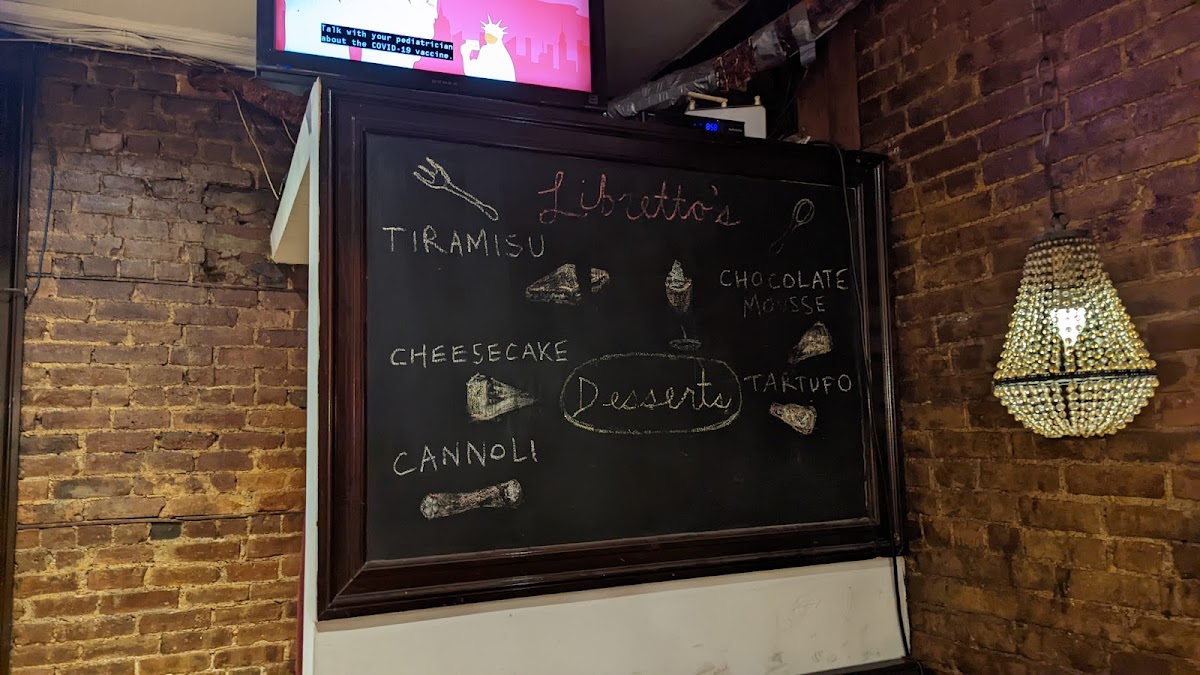 Talk with your pediatrician
about the COVID-19 vaccine.
Libretto's
TIRAMISU
CHOCOLATE
MOUSSE
CHEESECAKE
Desserts
TARTUFO
CANNOLI